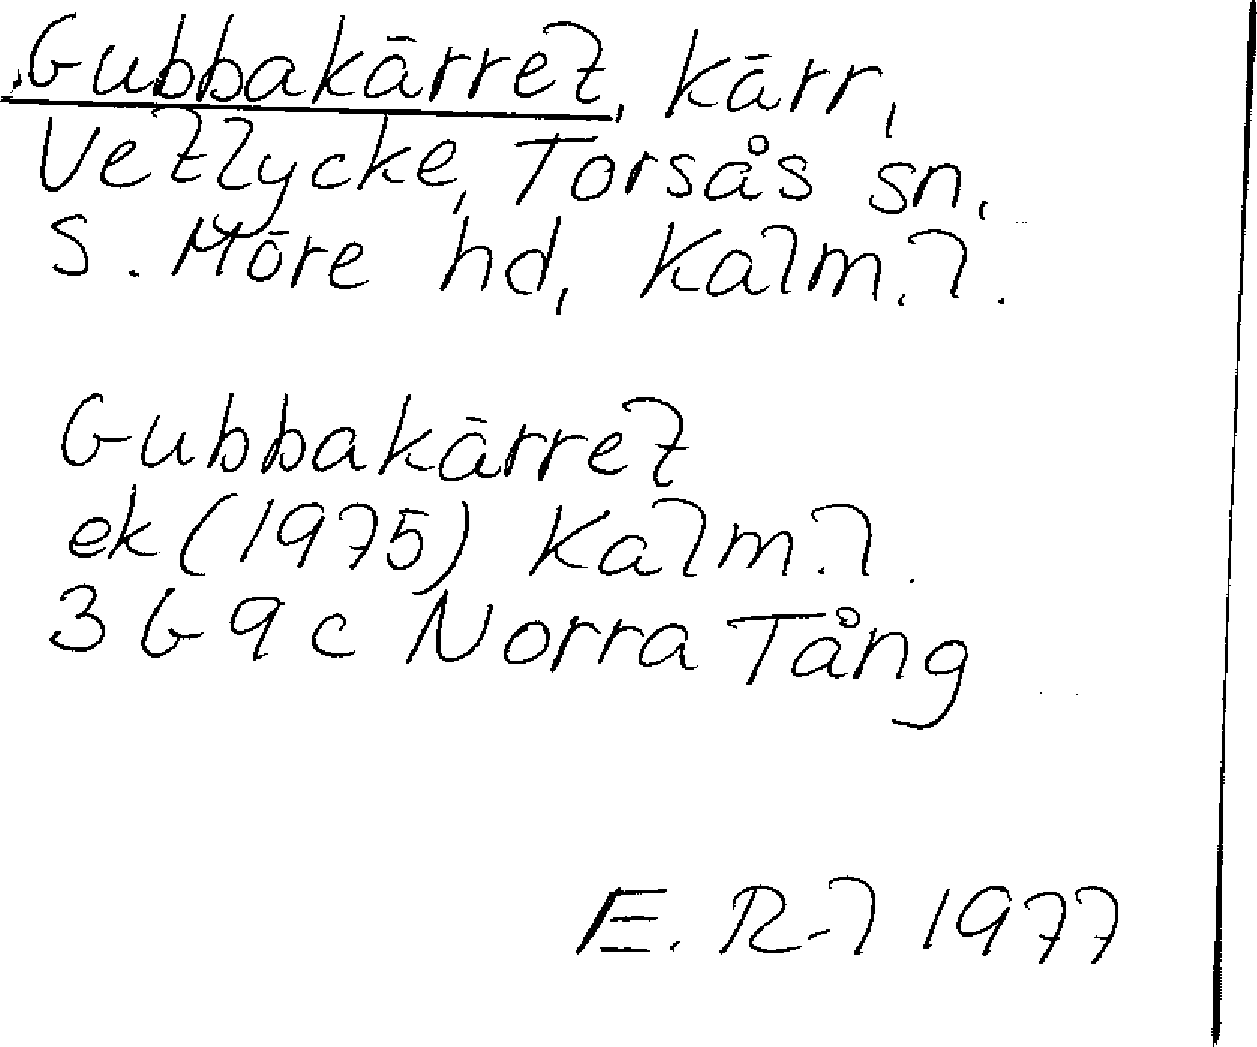 Gubbakärret, kärr,
Vetlycke, Torsås sn,
S. Möre hd, Kalm. l.
Gubbakärret
ek (1975) Kalm. l.
3 G 9 c Norra Tång
E. R-l 1977